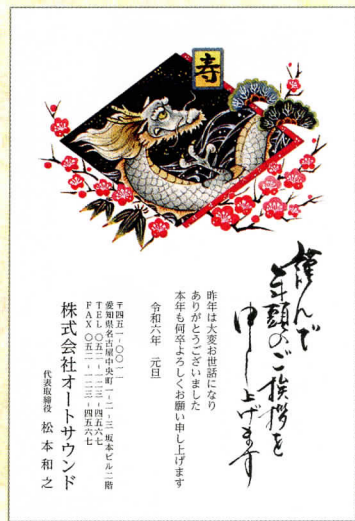 寿
謹んで
年頭のご挨拶を
申し上げます
昨年は大変お世話になり
ありがとうございました
本年も何卒よろしくお願い申し上げます
令和六年 元旦
〒四五一-〇〇一一
愛知県名古屋中央町一-二-三 坂本ビル二階
TEL 〇五二-一二三-四五六七
FAX 〇五二-一二三-四五六七
株式会社オートサウンド
代表取締役 松本和之